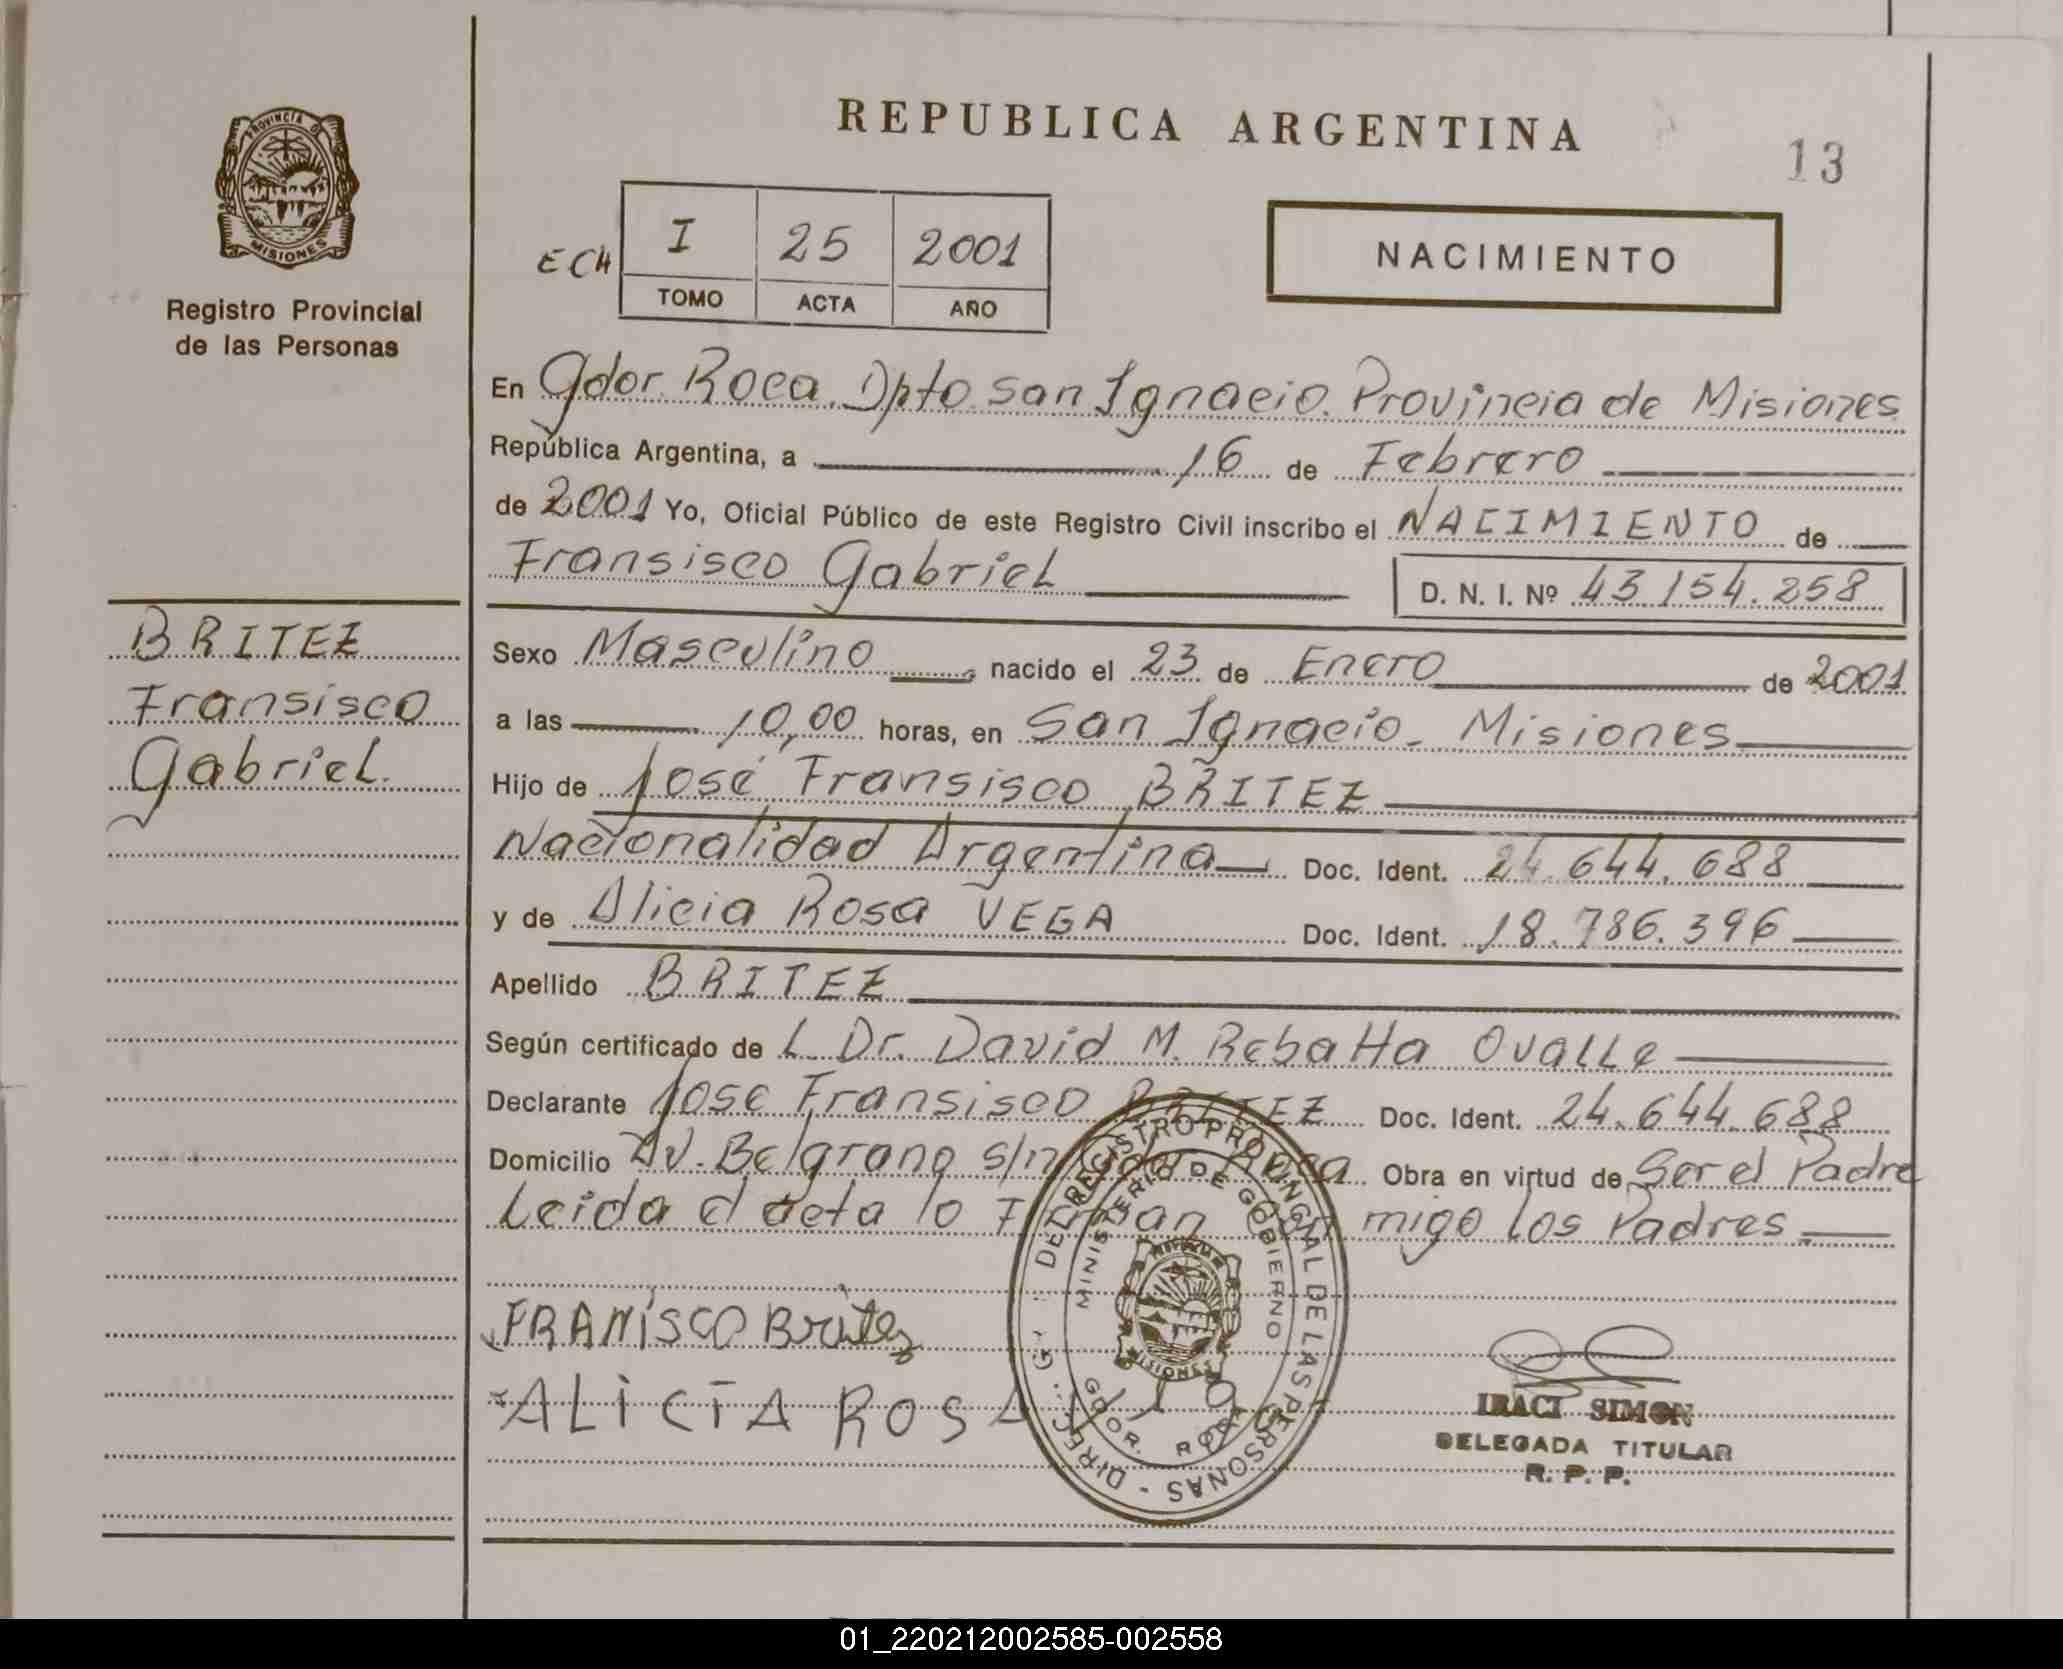 REPUBLICA ARGENTINA
13
PROVINCIA D
MISIONES
Registro Provincial
de las Personas
ECH
I 25 2001
TOMO ACTA AÑO
NACIMIENTO
En Gdor. Roca. Dpto San Ignacio. Provincia de Misiones
República Argentina, a 16 de Febrero
de 2001 Yo, Oficial Público de este Registro Civil inscribo el NACIMIENTO de
Fransisco Gabriel
D. N. I. Nº 43.154.258
BRITEZ
Fransisco
Gabriel.
Sexo Masculino, nacido el 23 de Enero de 2001
a las 10,00 horas, en San Ignacio - Misiones
Hijo de José Fransisco BRITEZ
Nacionalidad Argentina Doc. Ident. 24.644.688
y de Alicia Rosa VEGA Doc. Ident. 18.786.396
Apellido BRITEZ
Según certificado de L Dr. David M. Rebatta Ovalle
Declarante José Fransisco BRITEZ Doc. Ident. 24.644.688
Domicilio Av. Belgrano s/n Gdor. Roca Obra en virtud de Ser el Padre
Leida el acta lo Firman con migo los Padres.
FRANISCO Britez
ALICIA ROSA
DIREC. G. DEL REGISTRO PROVINCIAL DE LAS PERSONAS -
MINISTERIO DE GOBIERNO
MISIONES
GDOR. ROCA
IRACI SIMON
DELEGADA TITULAR
R. P. P.
01_220212002585-002558